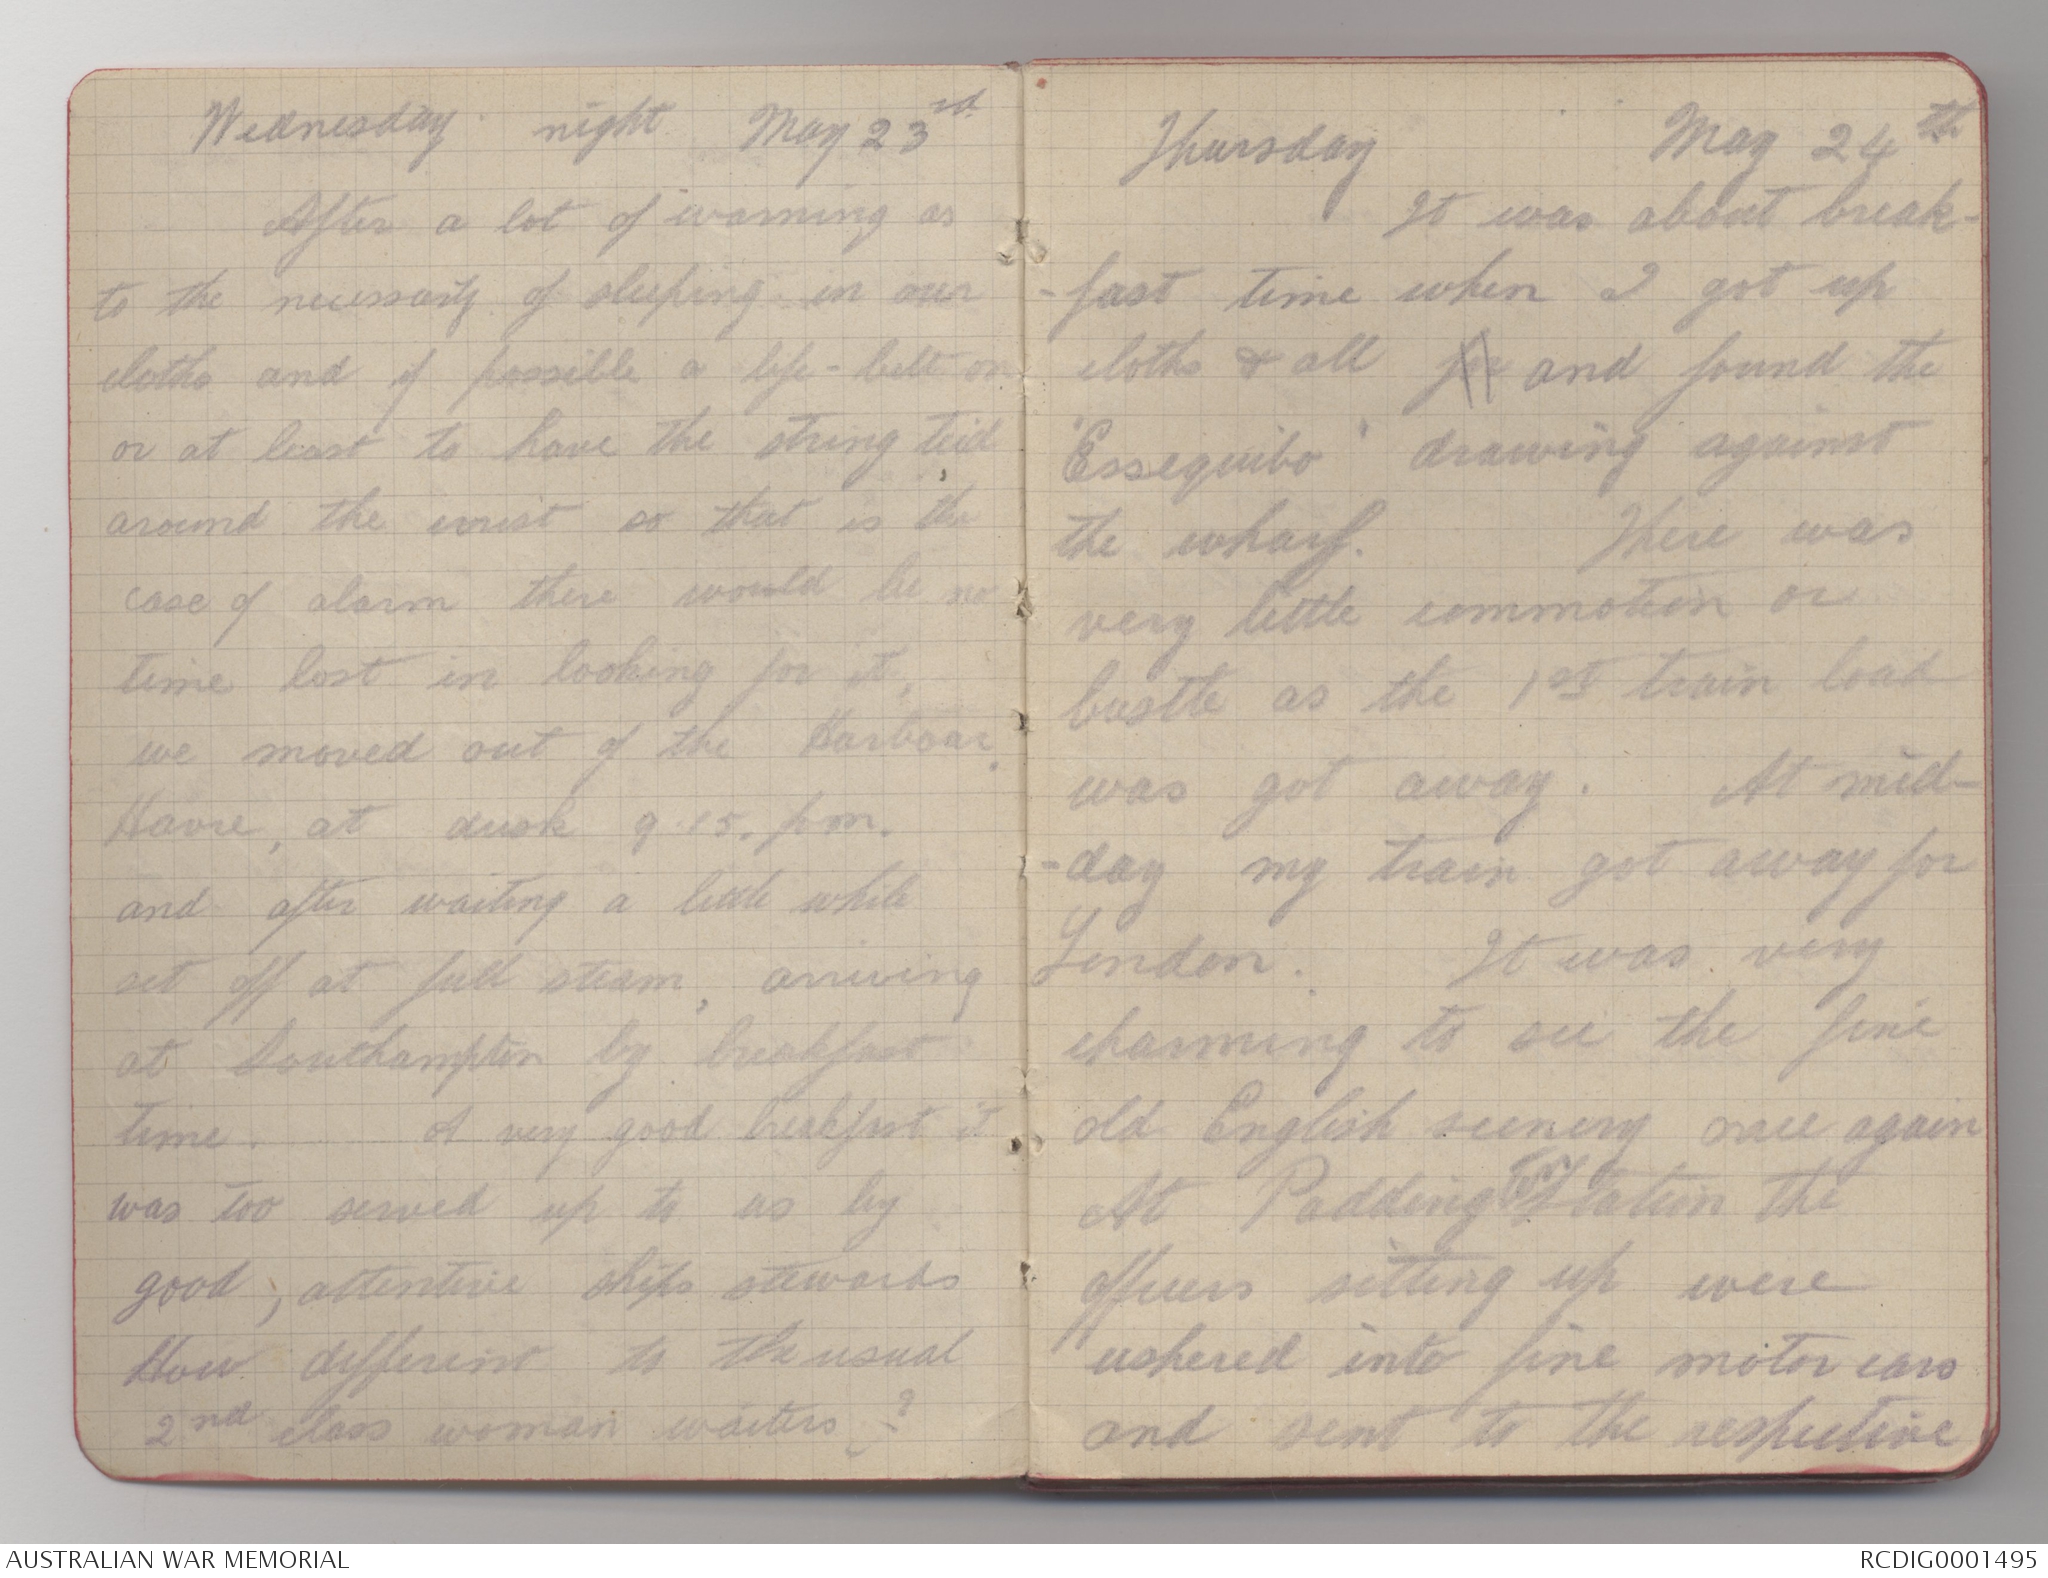 Wednesday night May 23rd
After a lot of warning as
to the necessaity of sleeping in our
cloths and if possible a life-belt on
or at least to have the string teid
around the wrist so that is the
case of alarm there would be no
time lost in looking for it,
we moved out of the Harbour.
Havre, at dusk 9.15. p.m.
and after waiting a little while
set off at full steam, arriving
at Southampton by breakfast
time. A very good breakfast it
was too served up to us by
good, attentive ships stewards
How different to the usual
2nd class woman waiters ?
Thursday May 24th
It was about break-
-fast time when I got up
cloths & all and found the
"Essequibo" drawing against
the wharf. There was
very little commotion or
bustle as the 1st train load
was got away. At mid-
-day my train got away for
London. It was very
charming to see the fine
old English scenery once again
At Paddington Station the
officers sitting up were
ushered into fine motor cars
and sent to the respective
AUSTRALIAN WAR MEMORIAL
RCDIG0001495